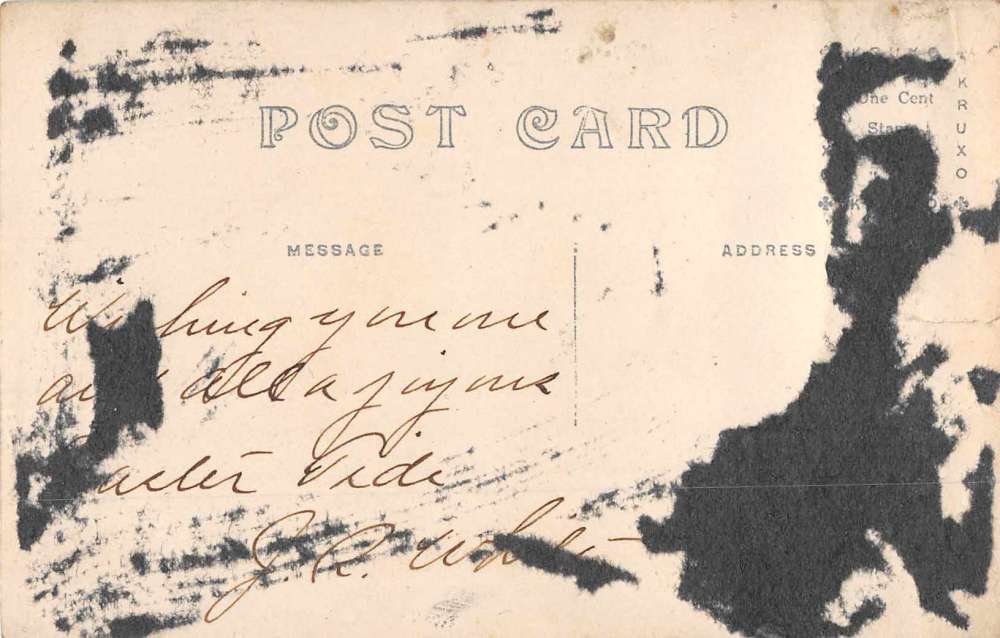 POST CARD
One Cent
KRUXO
MESSAGE
ADDRESS
Wishing you one
and all a joyous
Easter Tide
J. R.